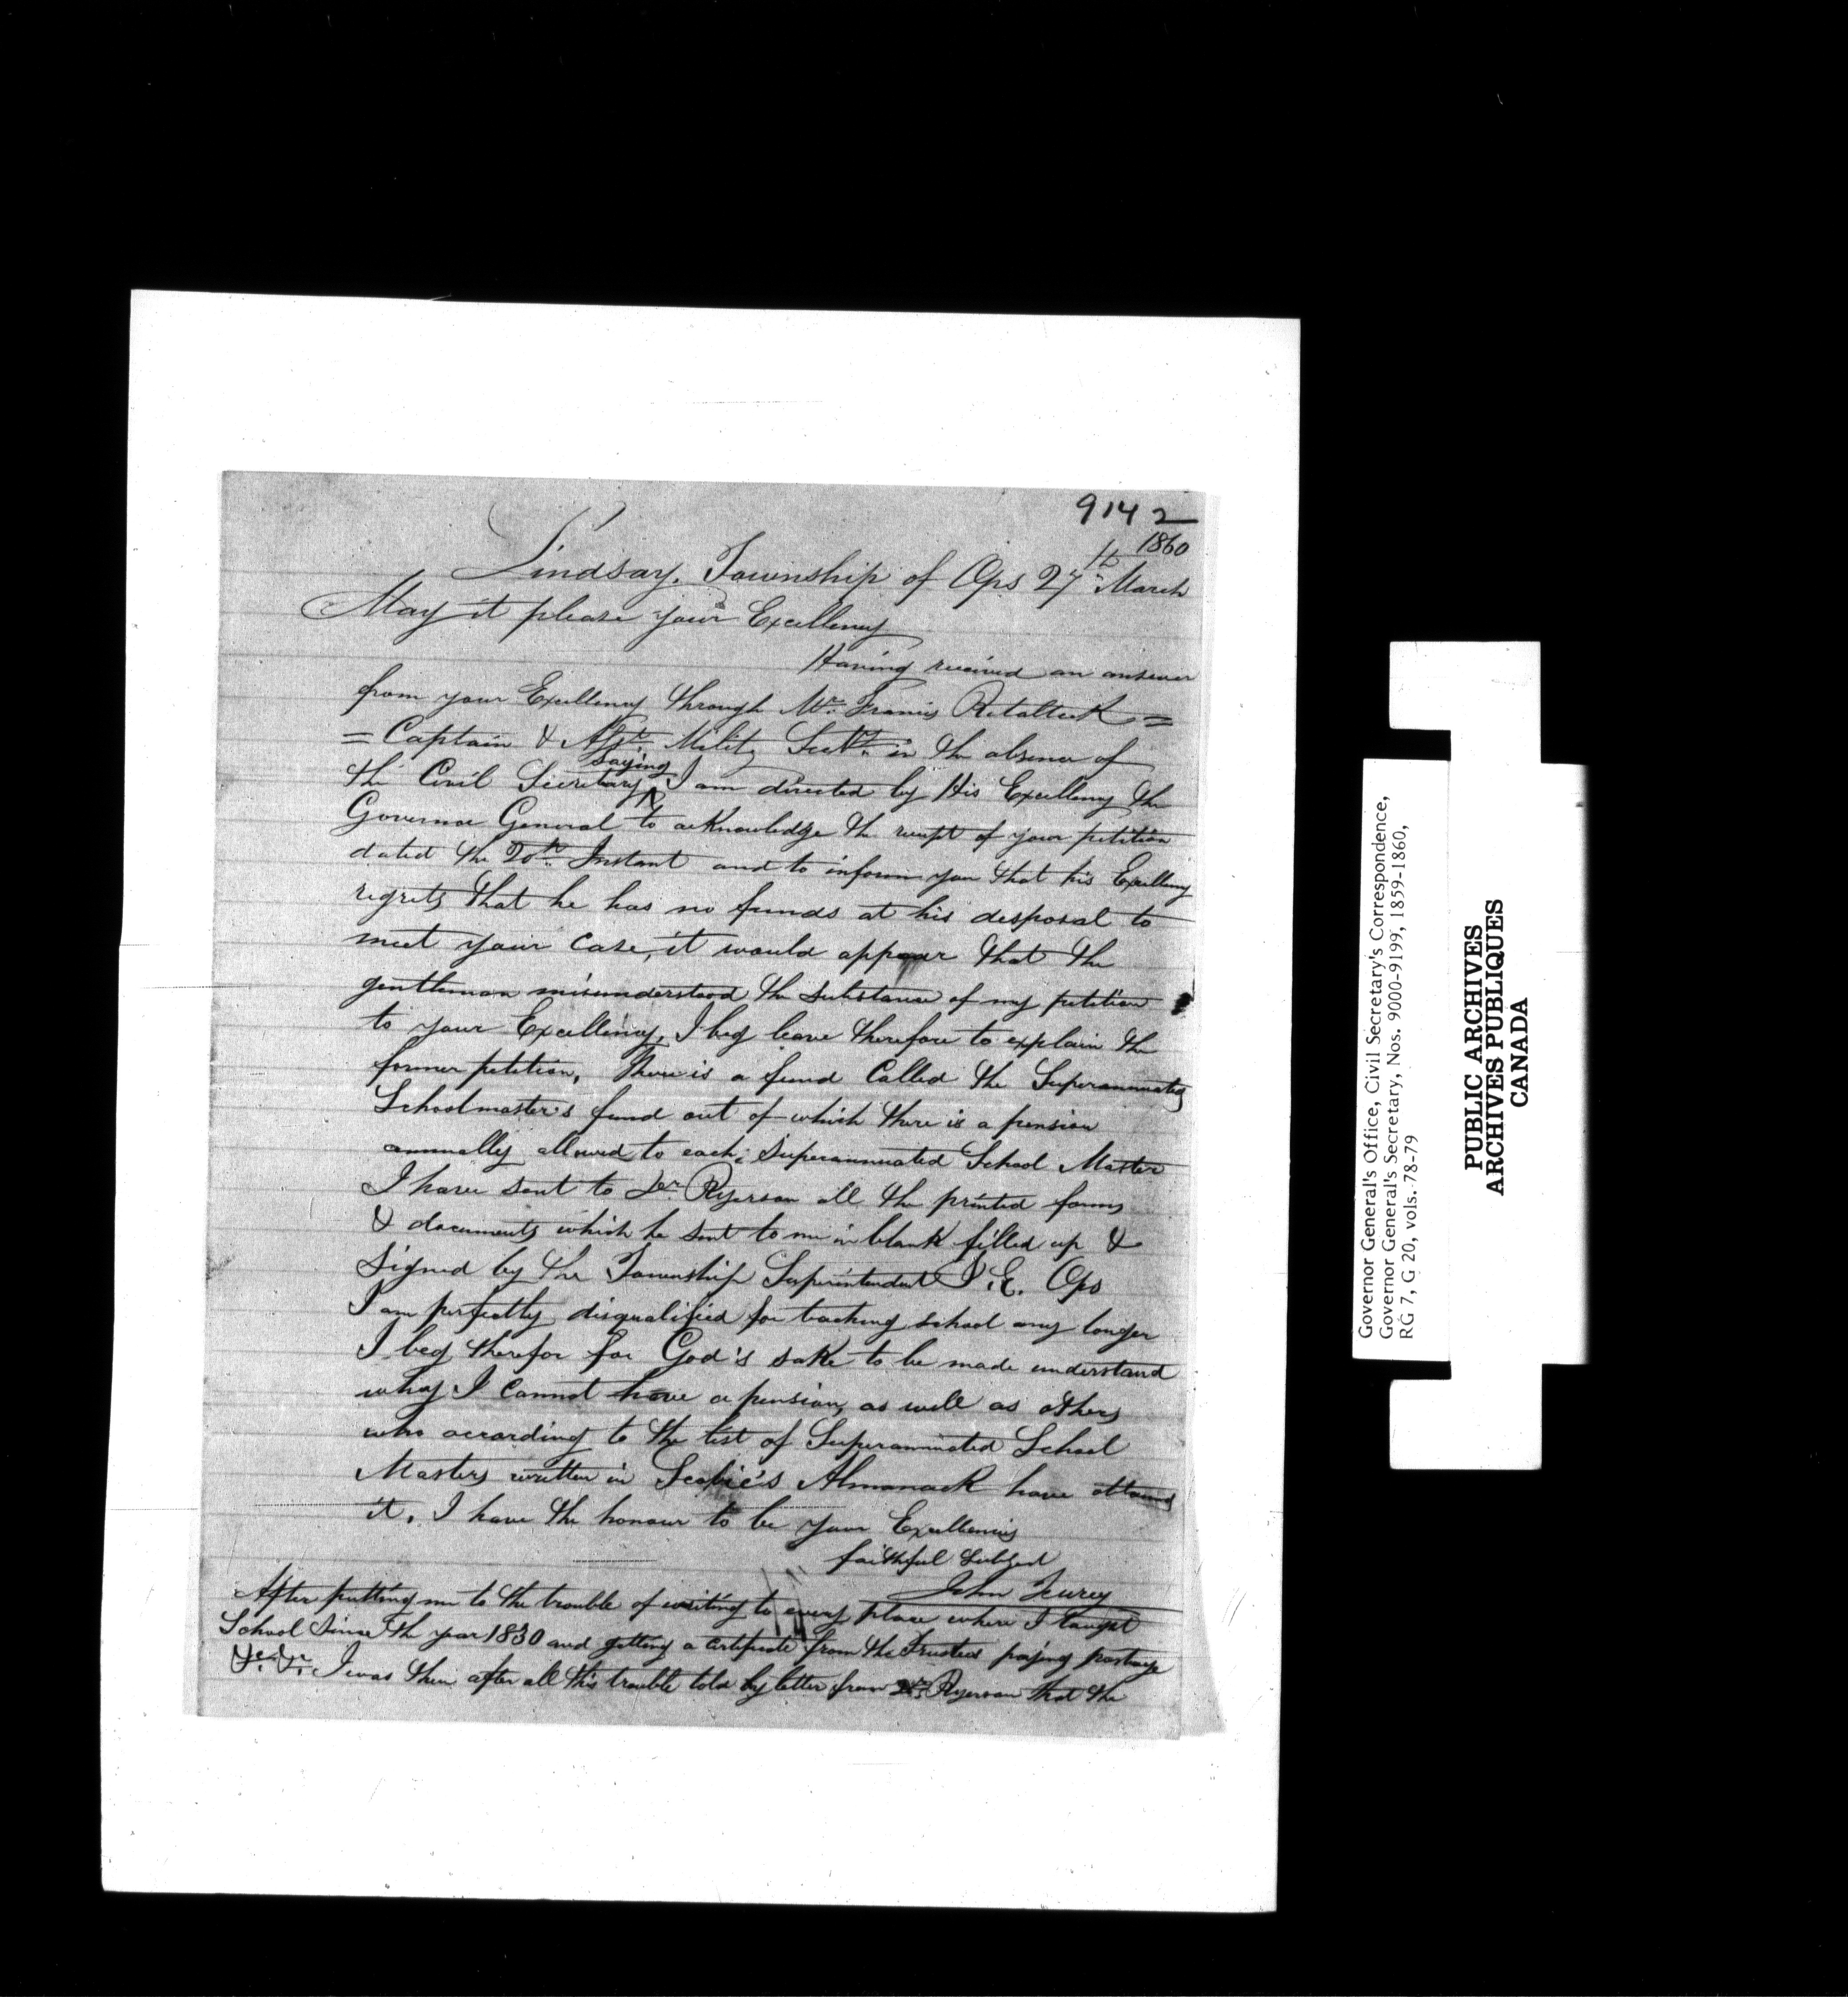 9142
1860
Lindsay, Township of Ops 27th March
May it please your Excellency
Having received an answer
from your Excellency through Mr. Francis Retallack =
= Captain & Asst. Military Secty. in the absence of
the Civil Secretary saying I am directed by His Excellency the
Governor General to acknowledge the receipt of your petition
dated the 20th Instant and to inform you that his Excellency
regrets that he has no funds at his desposal to
meet your case, it would appear that the
gentleman misunderstood the substance of my petition
to your Excellency, I beg leave therefore to explain the
former petition, There is a fund Called the Superannuated
Schoolmaster's fund out of which there is a pension
annually allowed to each Superannuated School Master
I have sent to Dr. Ryerson all the printed forms
& documents which he sent to me in blank filled up &
Signed by the Township Superintendent Ops
I am perfectly disqualified for teaching school any longer
I beg therefor for God's sake to be made understand
why I cannot have a pension, as well as others
who according to the list of Superannuated School
Masters written in Scobie's Almanack have attained
it. I have the honour to be your Excellencies
faithful Subject
John
After putting me to the trouble of writing to every place where I taught
School Since the year 1830 and getting a certificate from the Trustees paying postage
&c. &c. I was then after all this trouble told by letter from Dr. Ryerson that the
Governor General's Office, Civil Secretary's Correspondence,
Governor General's Secretary, Nos. 9000-9199, 1859-1860,
RG 7, G 20, vols. 78-79
PUBLIC ARCHIVES
ARCHIVES PUBLIQUES
CANADA